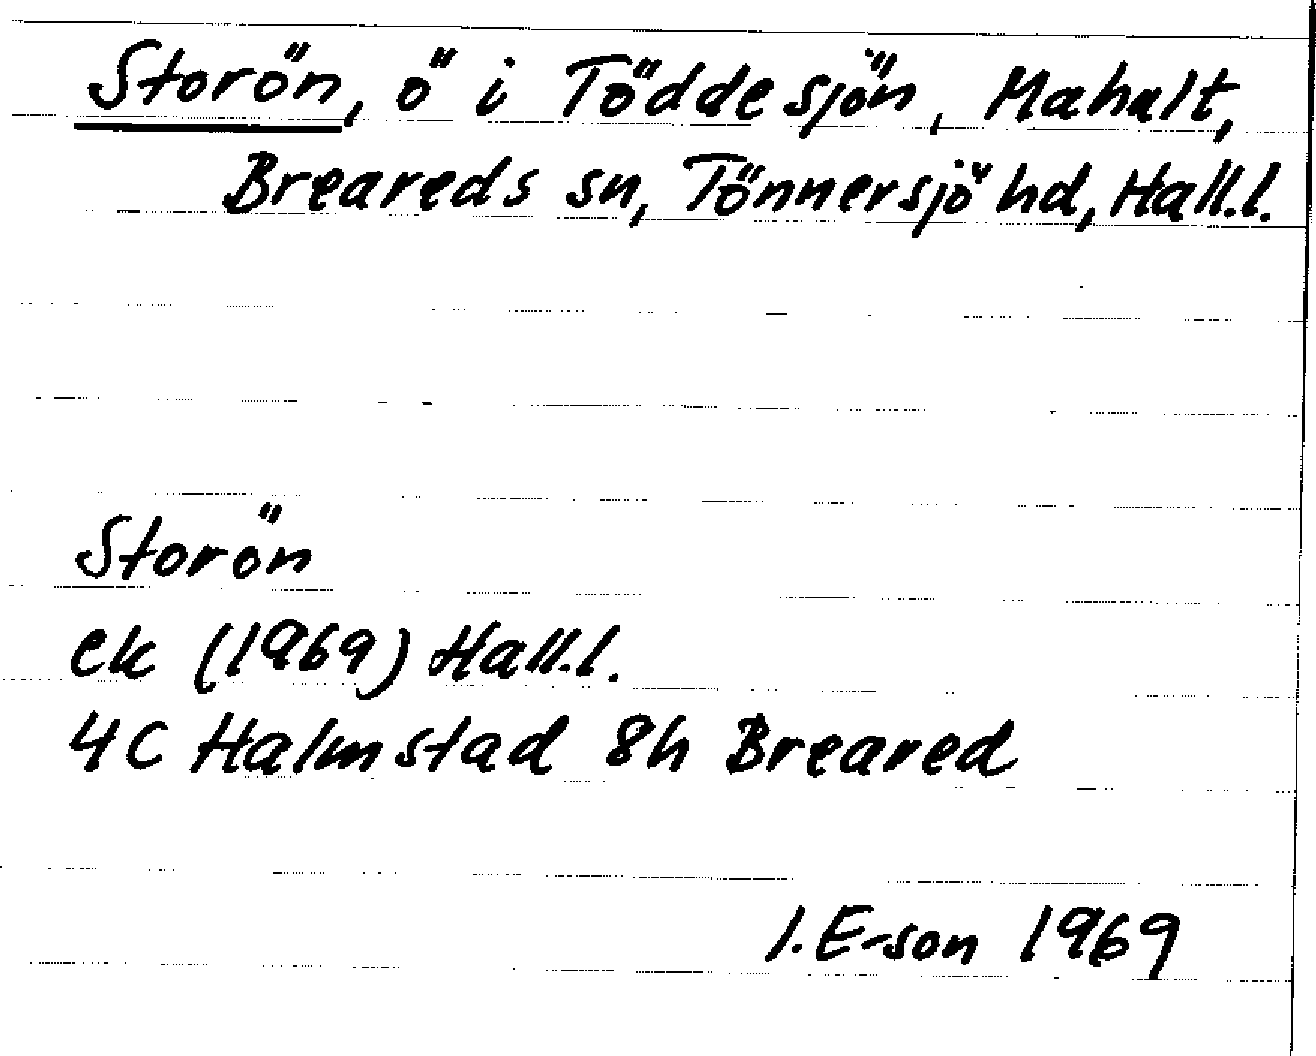 Storön, ö i Töddesjön, Mahult,
Breareds sn, Tönnersjö hd, Hall.l.
Storön
ek (1969) Hall.l.
4C Halmstad 8h Breared
I. E-son 1969